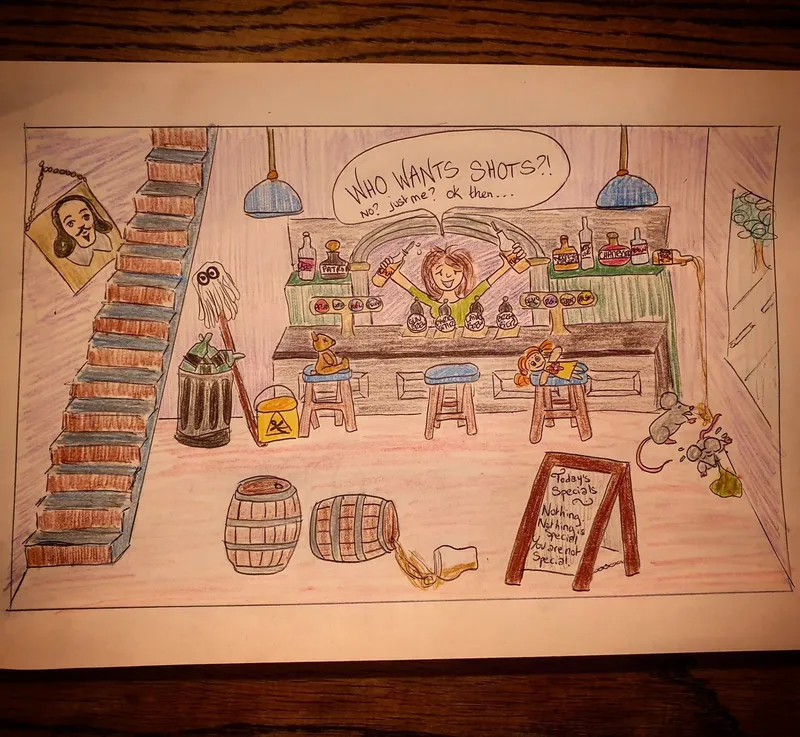 WHO WANTS SHOTS?!
No? just me? ok then...
PATRO
Today's
Specials
Nothing.
Nothing is
Special
You are not
Special.